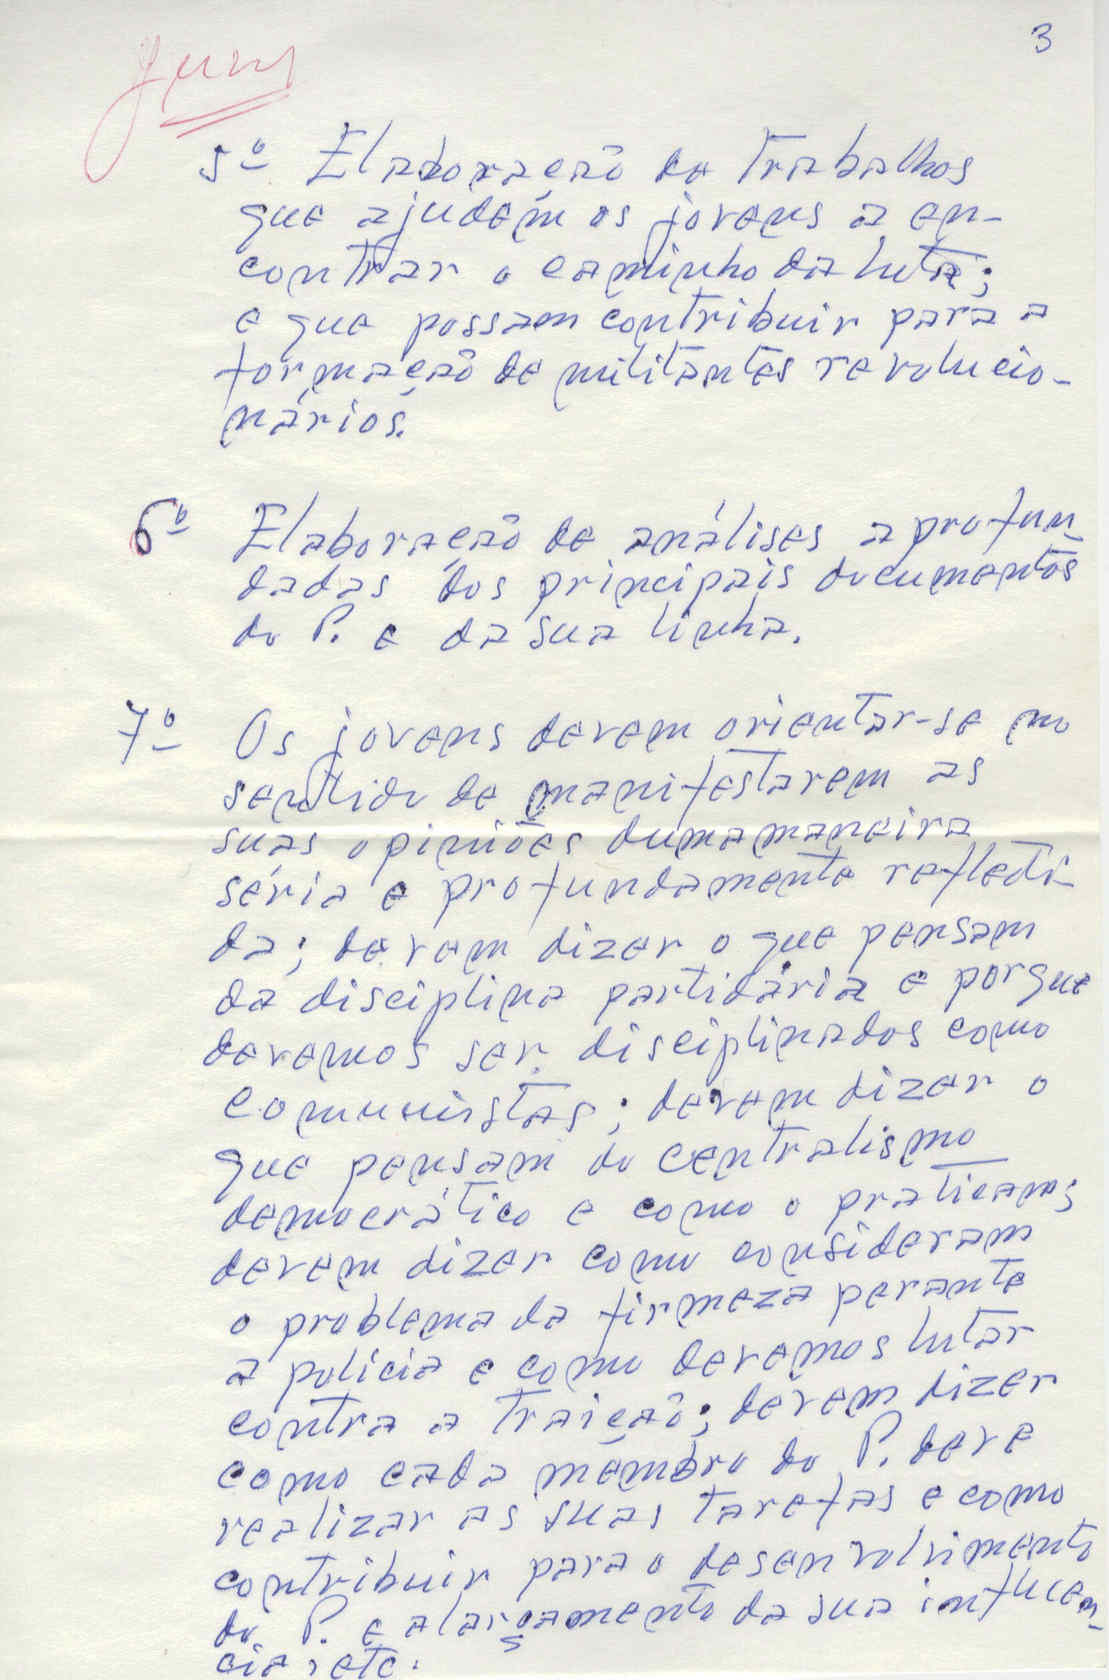 3
5º Elaboração de trabalhos
que ajudem os jovens a en-
contrar o caminho da luta;
e que possam contribuir para a
formação de militantes revolucio-
nários.
6º Elaboração de análises aprofun-
dadas dos principais documentos
do P. e da sua linha.
7º Os jovens devem orientar-se no
sentido de manifestarem as
suas opiniões duma maneira
séria e profundamente refleti-
da; devem dizer o que pensam
da disciplina partidária e porque
devemos ser disciplinados como
comunistas; devem dizer o
que pensam do centralismo
democrático e como o praticam;
devem dizer como consideram
o problema da firmeza perante
a polícia e como devemos lutar
contra a traição; devem dizer
como cada membro do P. deve
realizar as suas tarefas e como
contribuir para o desenvolvimento
do P. e alargamento da sua influen-
cia, etc.